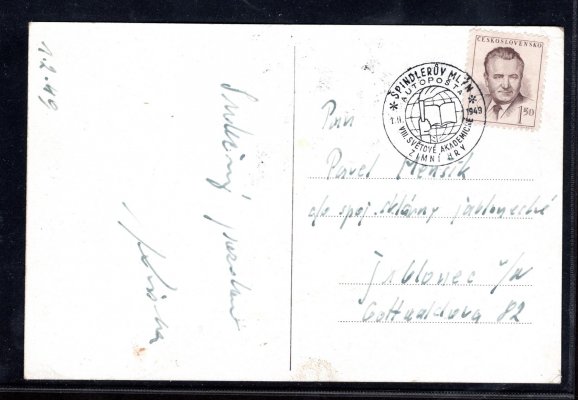 1.2.49
Srdečný pozdrav
ČESKOSLOVENSKO
1.50
ŠPINDLERŮV MLÝN
AUTOPOŠTA
1.II. 1949
VIII. SVĚTOVÉ AKADEMICKÉ
ZIMNÍ HRY
Pan
Pavel Menšík
do spoj. sklárny jablonecké
Jablonec n/N
Gottwaldova 82